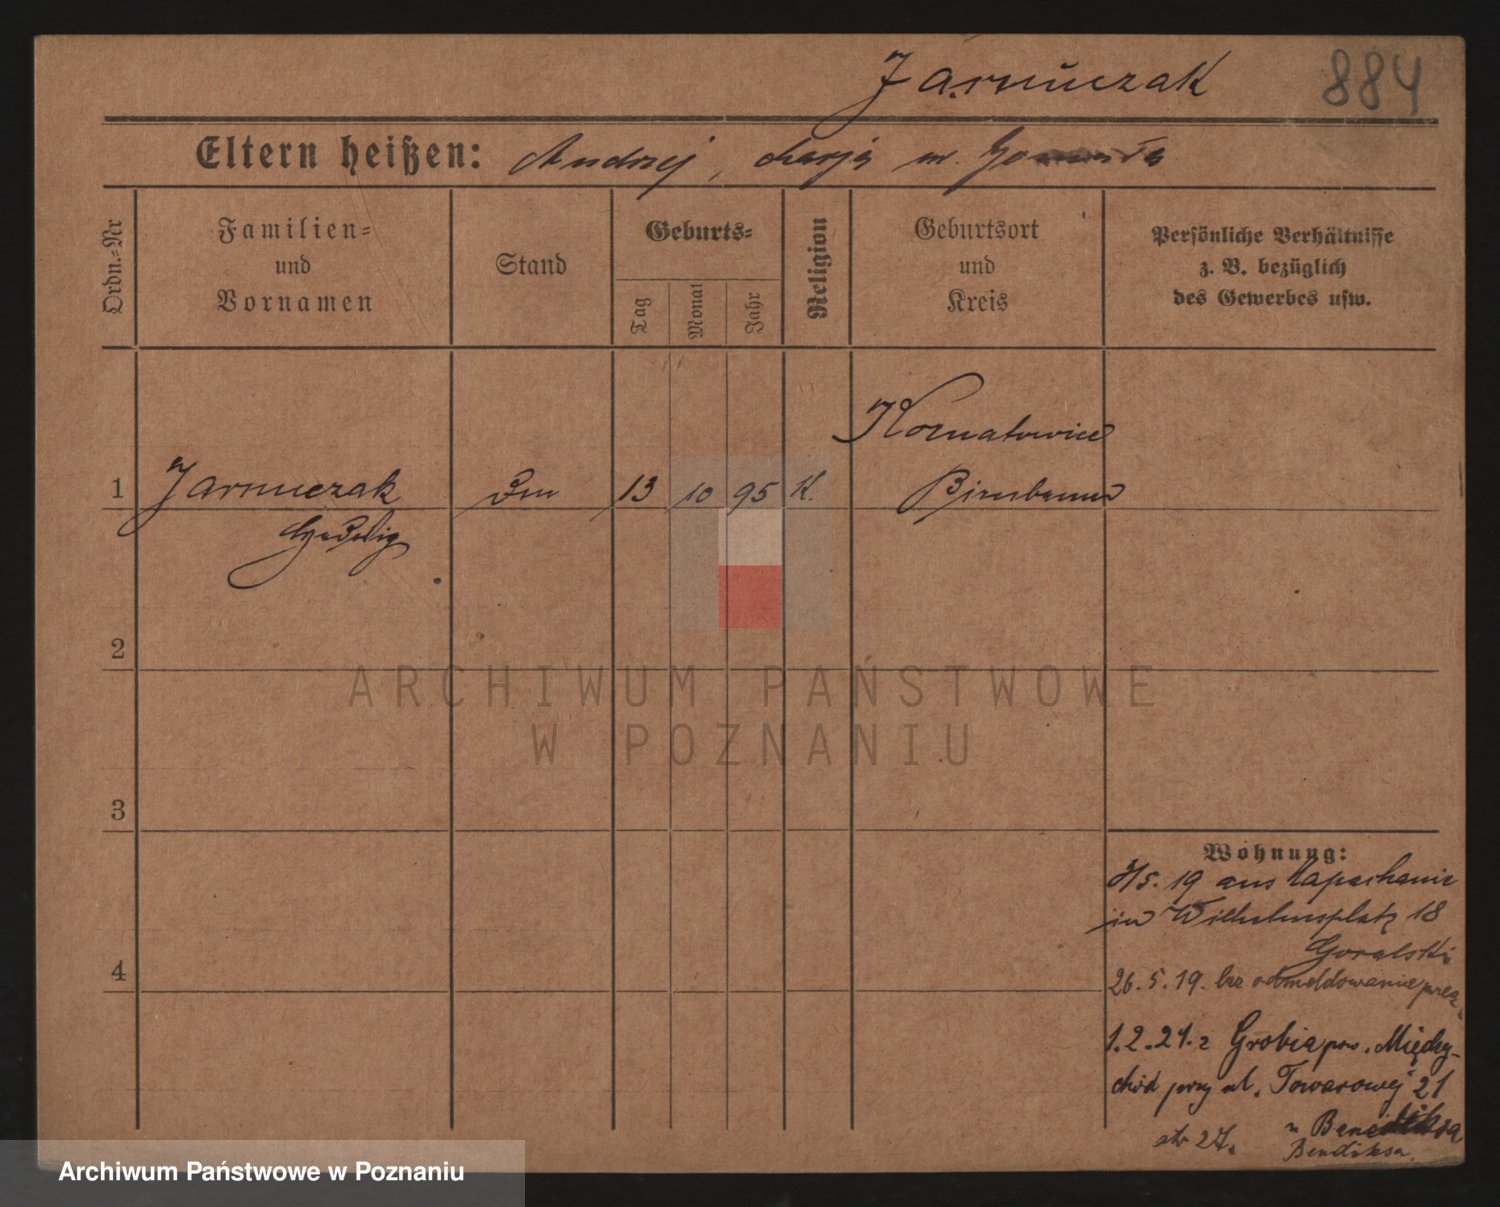 Jarmuczak 884
Eltern heißen: Andrzej, Marja
Ordn.-Nr
Familien-
und
Vornamen
Stand
Geburts-
Tag
Monat
Jahr
Religion
Geburtsort
und
Kreis
Persönliche Verhältnisse
z. B. bezüglich
des Gewerbes usw.
Kornatowice
1 Jarmuczak 13 10 95 K. Birnbaum
Hedwig
2
3
4
Wohnung:
5. 19 aus
in Wilhelmsplatz 18
Goralski
26. 5. 19. bez odmeldowania
1. 2. 21. z Grobia pow. Między-
chód przy ul. Towarowej 21
str 27.
u
Bendiksa
ARCHIWUM PAŃSTWOWE
W POZNANIU
Archiwum Państwowe w Poznaniu